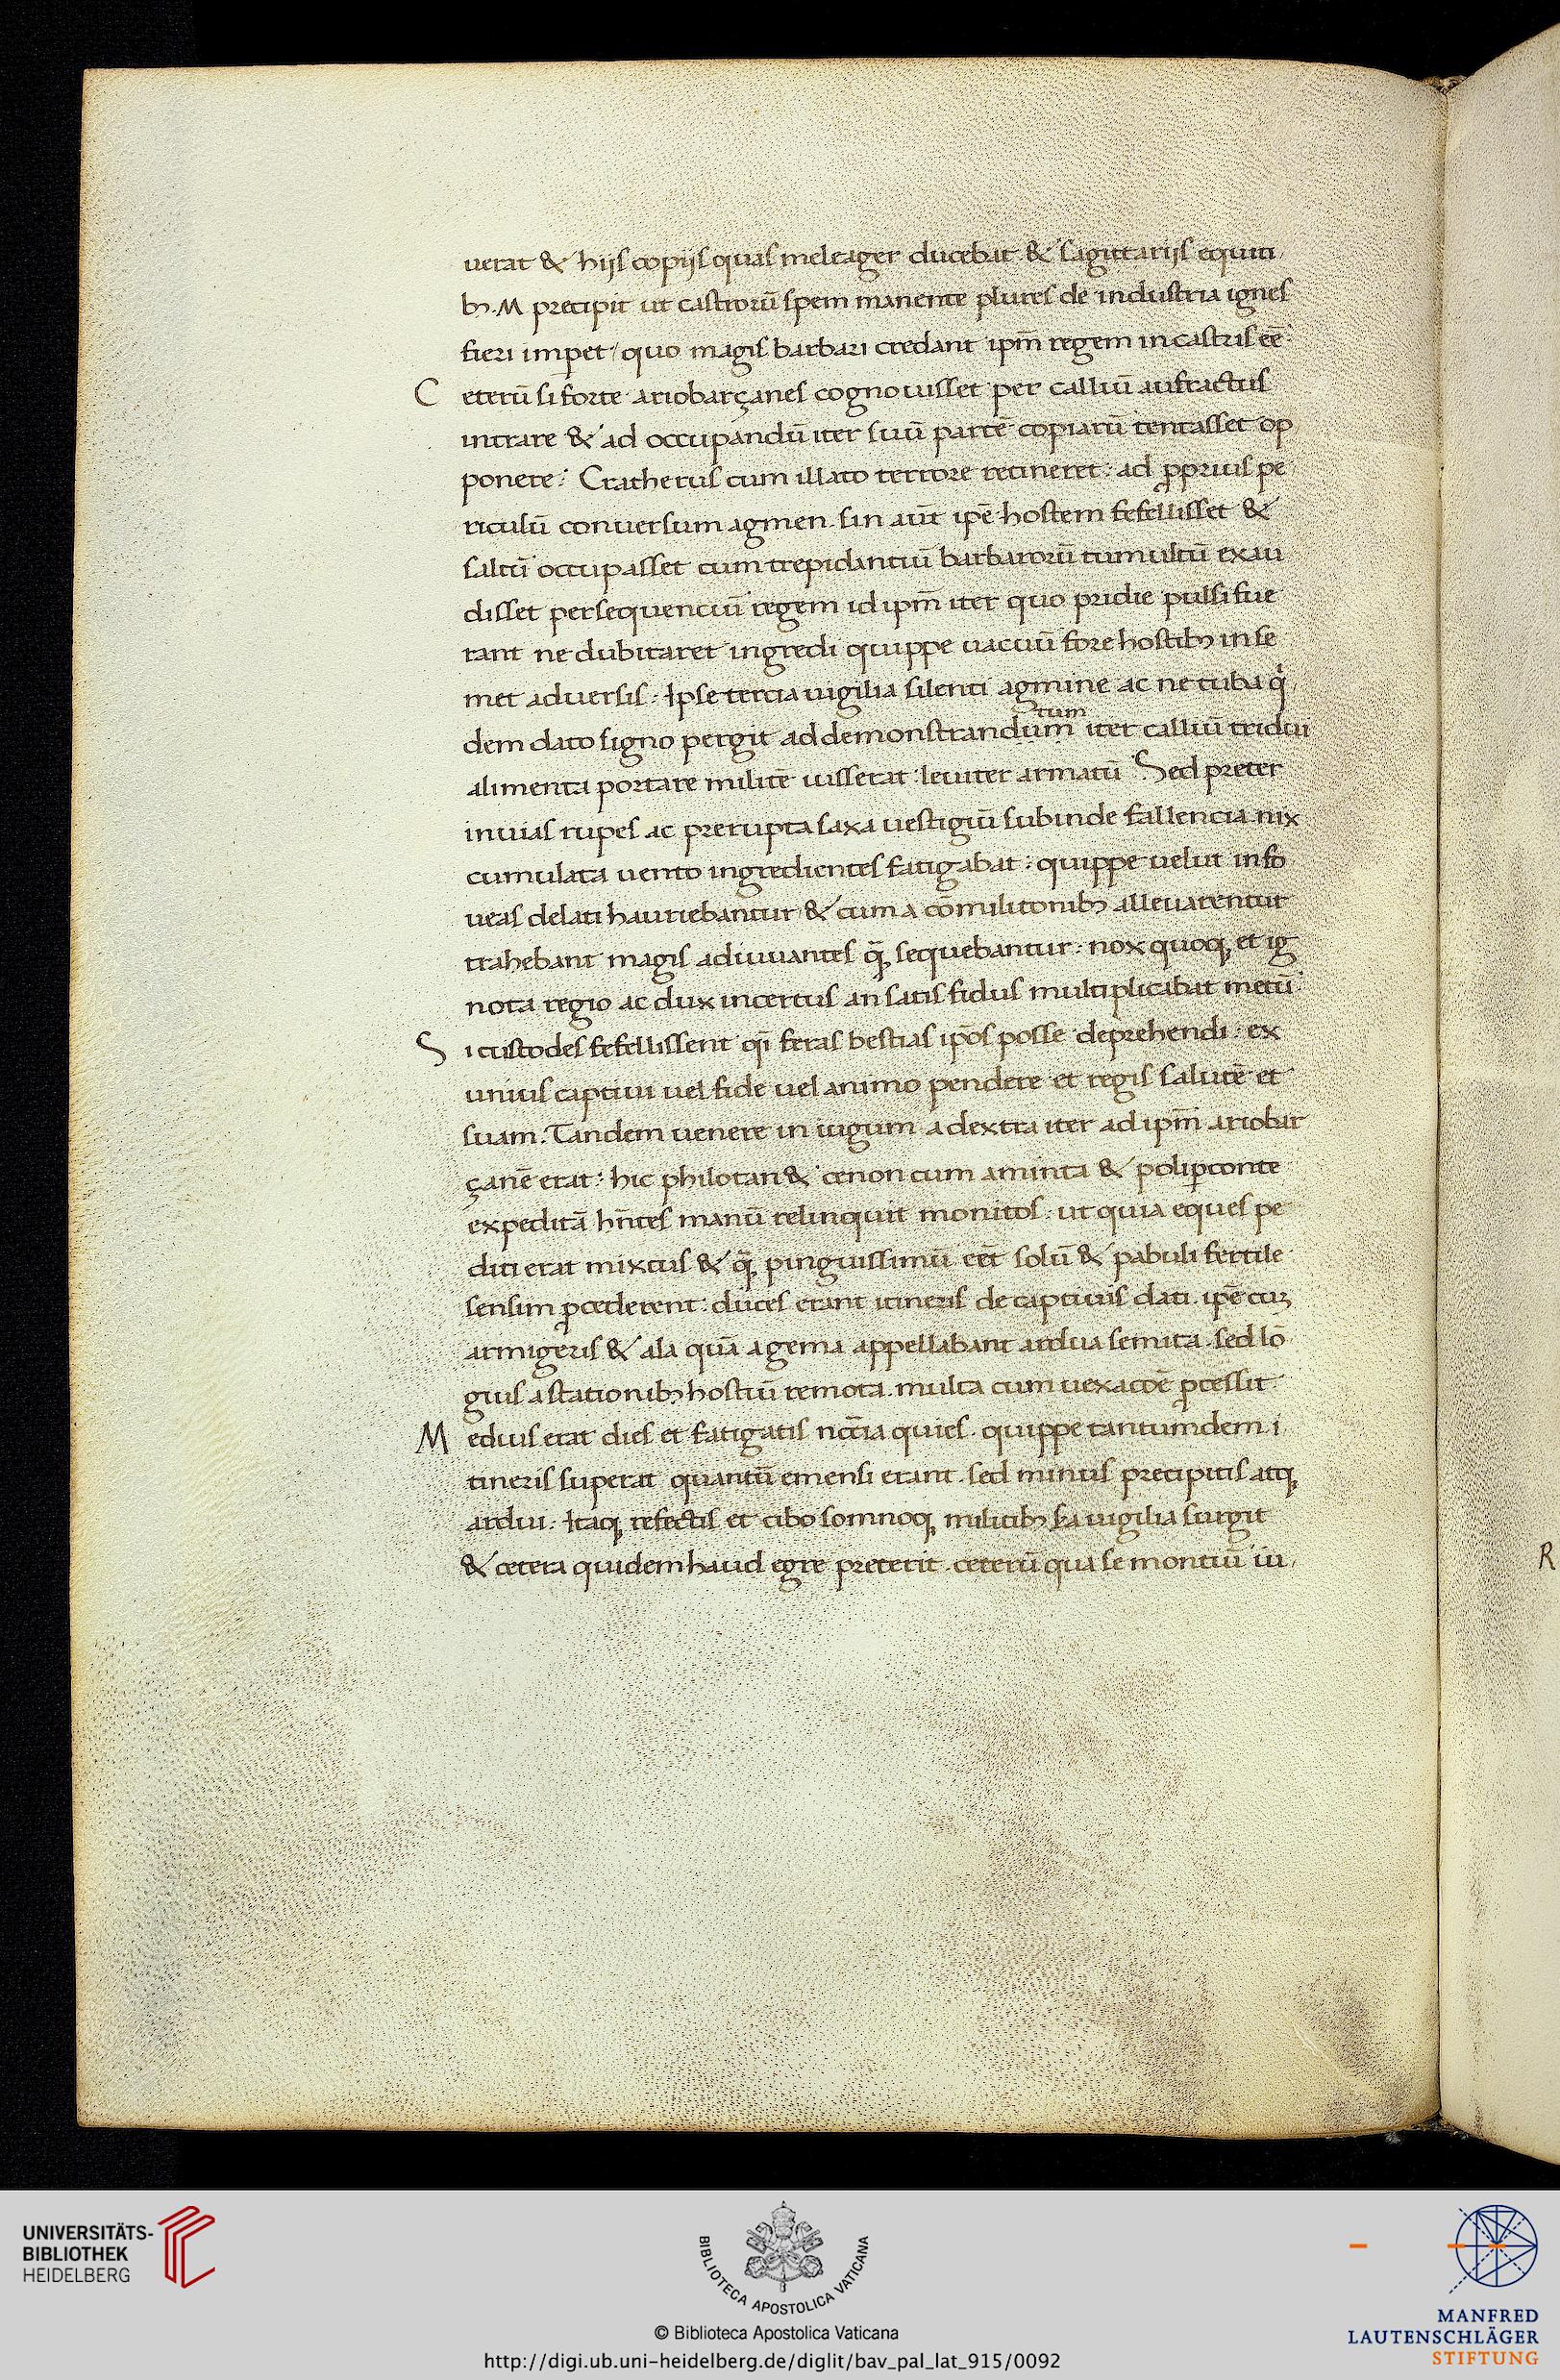 uerat & hijs copijs quas meleager ducebat & sagittarijs equiti
bꝫ. M precipit ut castrorū spem manente plures de industria ignes
fieri impet / quo magis barbari credant ipm̄ regem in castris eē
C eterū si forte ariobarçanes cognouisset per calliū anfractus
intrare & ad occupandū iter suū partē copiarū tentasset op
ponere: Cratherus cum illato terrore retineret: ad ꝓprius pe
riculū conuersum agmen. sin aūt ipē hostem fefellisset &
saltū occupasset cum trepidantiū barbarorū tumultū exau
disset persequenciū regem id ipm̄ iter quo pridie pulsi fue
rant ne dubitaret ingredi quippe uacuū fore hostibꝫ in se
met aduersis: Ipse tercia uigilia silenti agmine ac ne tuba qͥ
dem dato signo pergit ad demonstrandum iter calliū tridui
tum
alimenta portare militē iusserat: leuiter armatū Sed preter
inuias rupes ac prerupta saxa uestigiū subinde fallencia nix
cumulata uento ingredientes fatigabat: quippe uelut in fo
ueas delati hauriebantur & cum a cōmilitonibꝫ alleuarentur
trahebant magis adiuuantes q̄ꝫ sequebantur: nox quoqꝫ et ig
nota regio ac dux incertus an satis fidus multiplicabat metū
S i custodes fefellissent q̄i feras bestias ipōs posse deprehendi: ex
unius captiui uel fide uel animo pendere et regis salutē et
suam. Tandem uenere in iugum a dextra iter ad ipm̄ ariobar
çanē erat: hic philotan & cenon cum aminta & poliꝑconte
expeditā hn̄tes manū relinquit monitos: ut quia eques pe
diti erat mixtus & q̄ꝫ pinguissimū eēt solū & pabuli fertile
sensim ꝓcederent: duces erant itineris de captiuis dati. ipē cuꝫ
armigeris & ala quā agema appellabant ardua semita. sed lō
gius a stationibꝫ hostiū remota. multa cum uexacōe ꝓcessit
M edius erat dies et fatigatis nccīa quies. quippe tantumdem i
tineris superat quantū emensi erant. sed minus precipitis atqꝫ
ardui: Itaqꝫ refectis et cibo somnoqꝫ militibꝫ ſa uigilia surgit
& cetera quidem haud egre preterit. ceterū qua se montiū iu
R
UNIVERSITÄTS-
BIBLIOTHEK
HEIDELBERG
BIBLIOTECA APOSTOLICA VATICANA
© Biblioteca Apostolica Vaticana
http://digi.ub.uni-heidelberg.de/diglit/bav_pal_lat_915/0092
MANFRED
LAUTENSCHLÄGER
STIFTUNG